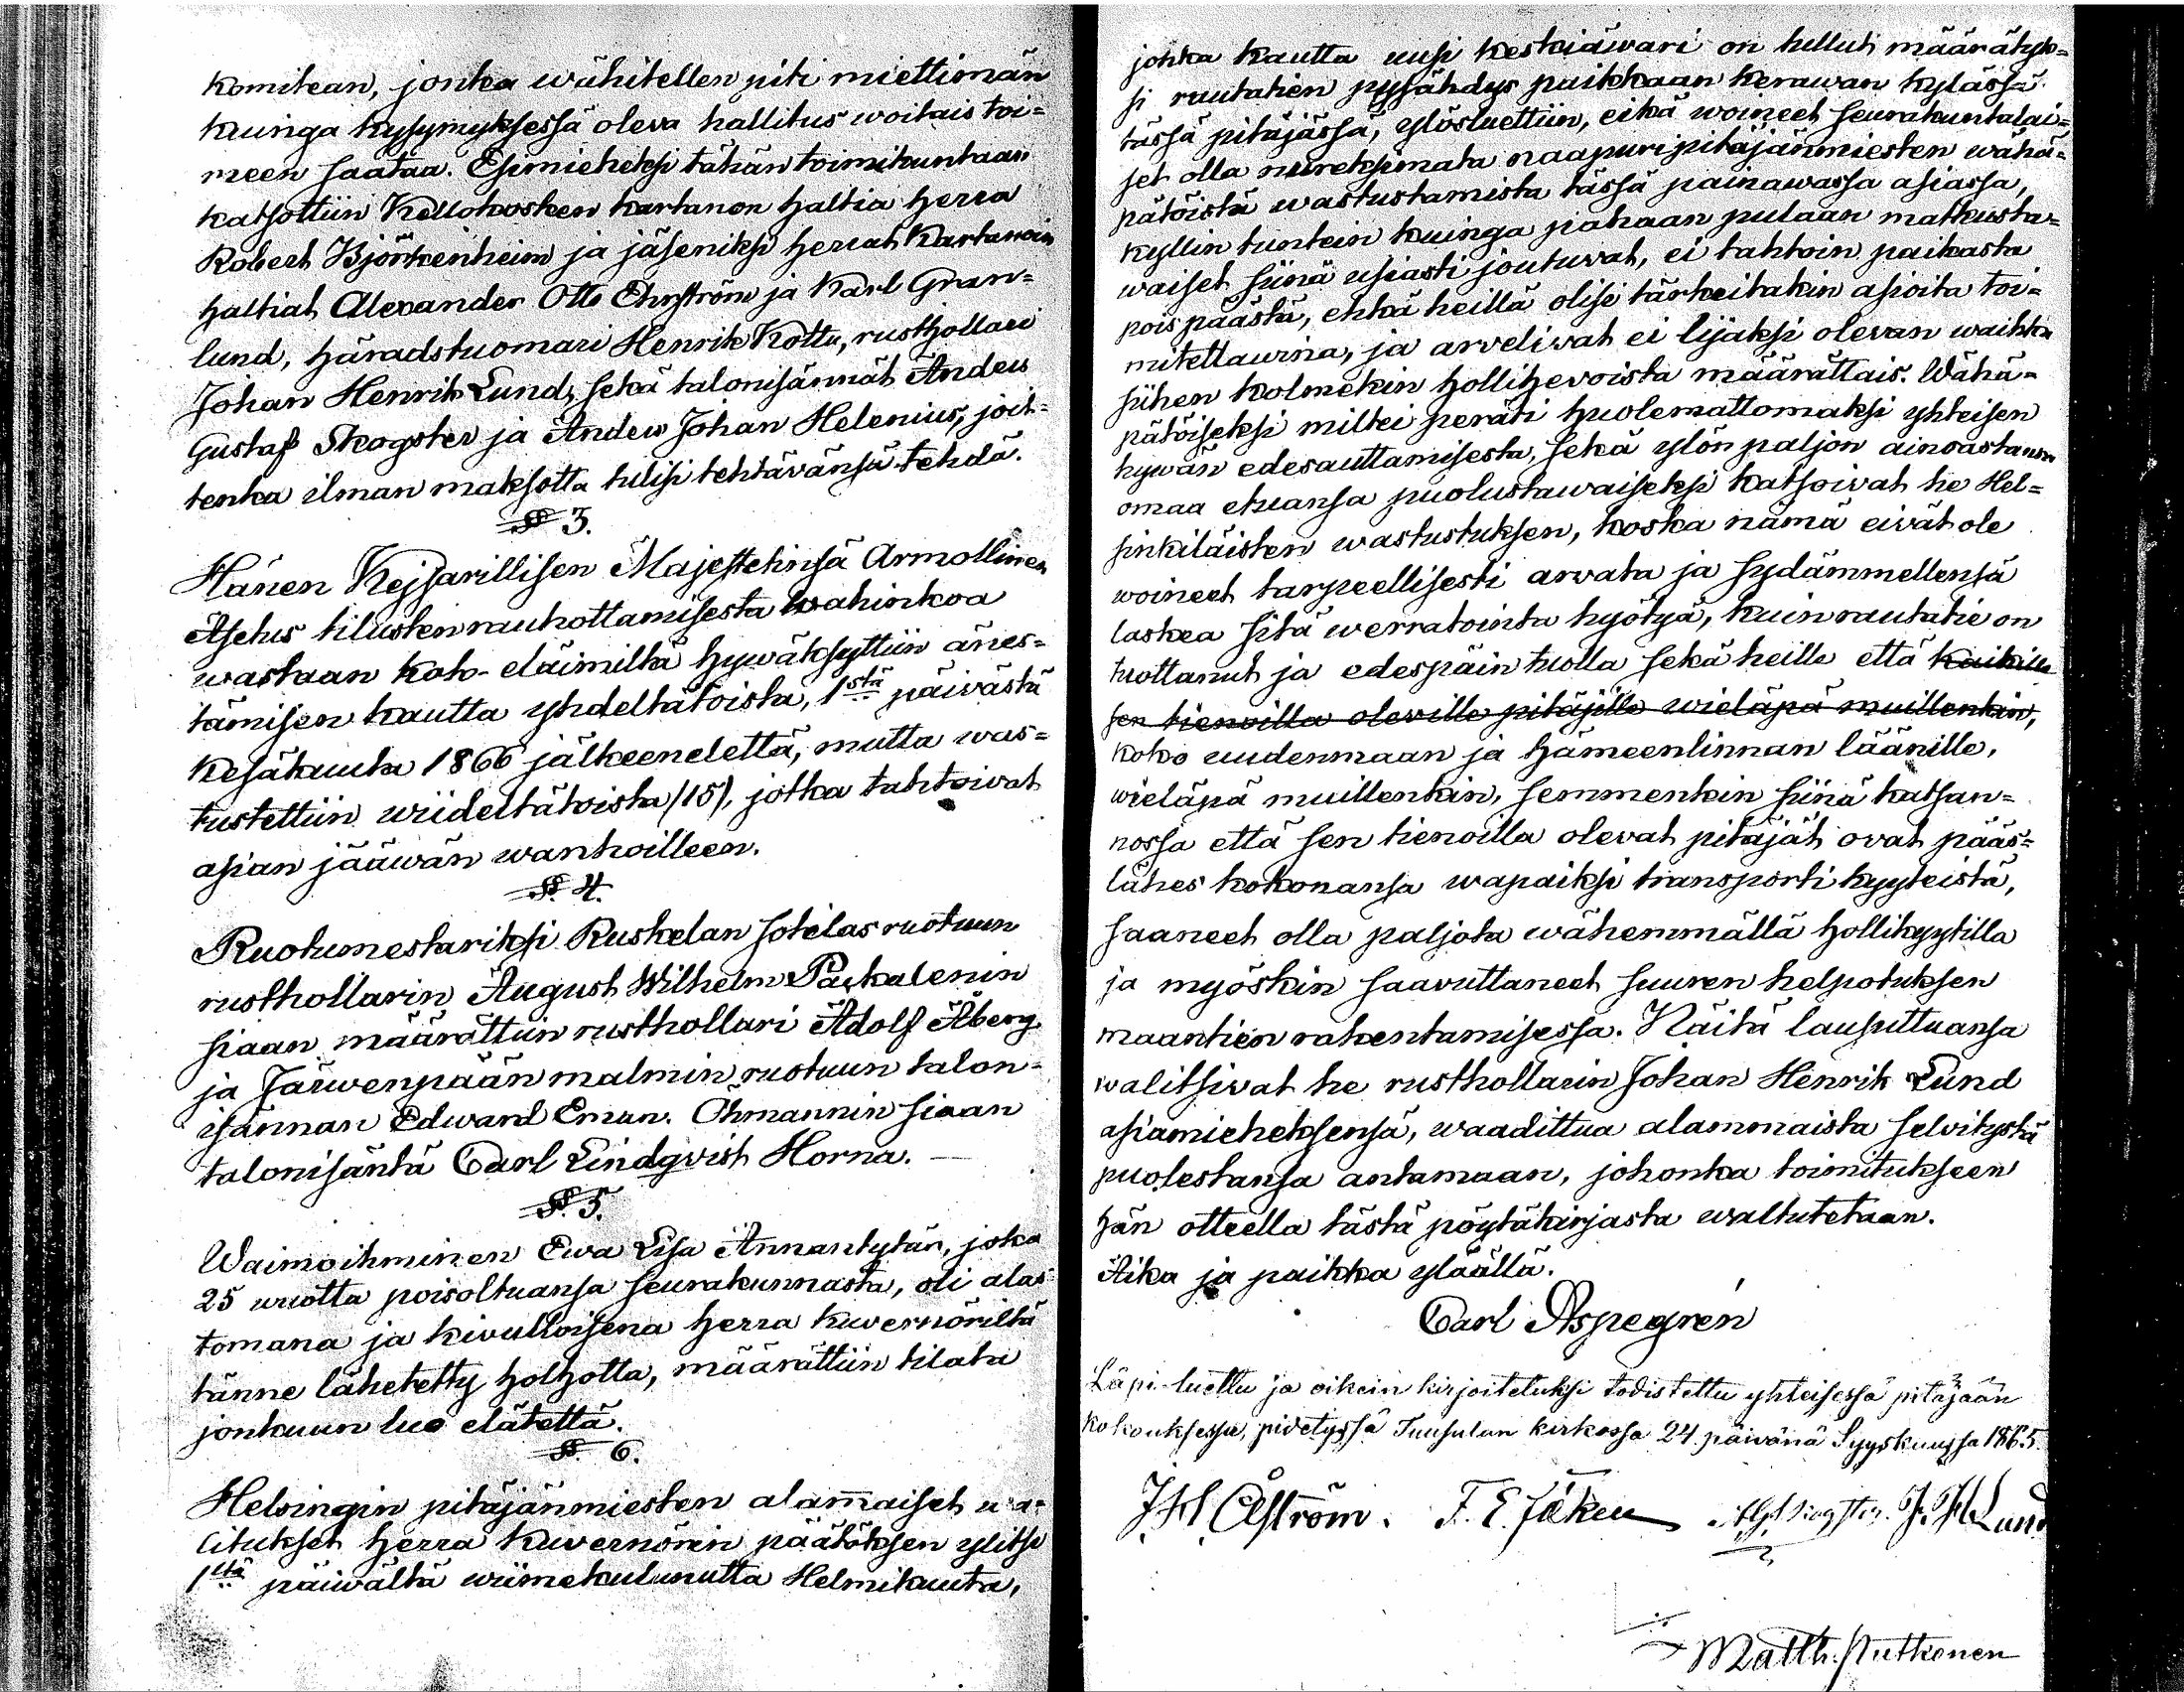 komitean, jonka wähitellen piti miettimän
kuinga kysymyksessä oleva hallitus woitais toi=
meen saataa. Esimieheksi tähän toimikuntaan
katsottiin Kellokosken kartanon haltia herra
Robert Björkenheim ja jäseniksi herrat kartanoin
haltiat Alexander Otto Ehrström ja Karl Gran=
lund, häradstuomari Henrik Kottu, rusthollari
Johan Henrik Lund, sekä talonisännät Anders
Gustaf Skogster ja Anders Johan Helenius, joit=
tenka ilman maksotta tulisi tehtävänsä tehdä.
§ 3.
Hänen Kejsarillisen Majestetinsä Armollinen
Asetus tilusten rauhottamisesta wahinkoa
wastaan koto-eläimiltä hywäksyttiin änes=
tämisen kautta yhdeltätoista, 1stä päivästä
Kesäkuuta 1866 jälkeenelettä, mutta was=
tustettiin wiideltätoista (15), jotka tahtoivat
asian jääwän wanhoilleen.
§. 4.
Ruotumestariksi Ruskelan sotilas ruotuun
rusthollarin August Wilhelm Paikalenin
siaan määrättiin rusthollari Adolf Åberg
ja Järwenpään malmin ruotuun talon=
isännan Edward Eman. Öhmannin siaan
talonisäntä Carl Lindqvist Horna. —
§. 5.
Waimoihminen Ewa Lisa Annantytär, joka
25 wuotta poisoltuansa seurakunnasta, oli alas=
tomana ja kivulloisena herra kuvernöriltä
tänne lähetetty holhotta, määrättiin tilata
jonkuun luo elätettä.
§. 6.
Helsingin pitäjänmiesten alamaiset wa=
litukset herra kuvernörin päätöksen ylitse
1ltä päiwältä wiimekulunutta Helmikuuta,
jonka kautta uusi keskiäwari on tullut määrätyk=
si rautatien pysähdys paikkaan Kerawan kylässä
tässä pitäjässä, ylösluettiin, eikä woineet seurakuntalai=
set olla nureksimata naapuripitäjänmiesten wähä=
pätöistä wastustamista tässä painawassa asiassa,
kyllin tuntein kuinga pahaan pulaan matkusta=
waiset siinä usiasti joutuvat, ei tahtoin paikasta
pois päästä, ehkä heillä olisi tärkeitäkin asioita toi=
mitettawina, ja arvelivat ei lijaksi olevan waikka
siihen kolmekin hollihevoista määrättais. Wähä=
pätöiseksi miltei peräti huolemattomaksi yhteisen
hywän edesauttamisesta, sekä ylön paljon ainoastansa
omaa etuansa puolustawaiseksi katsoivat he Hel=
sinkiläisten wastustuksen, koska nämä eivät ole
woineet tarpeellisesti arvata ja sydämmellensä
laskea sitä werratointa hyötyä, kuin rautatie on
tuottanut ja edespäin tuolla sekä heille että kaikille
sen tienoilla oleville pitäjille wieläpä muillenkin,
koko uudenmaan ja hämeenlinnan läänille,
wieläpä muillenkin, semmenkin siinä katsan=
nossa että sen tienoilla olevat pitäjät ovat pääs=
lähes kokonansa wapaiksi transporti kyyteistä,
saaneet olla paljota wähemmällä hollikyytilla
ja myöskin saavuttaneet suuren helpotuksen
maantien rakentamisessa. Näitä lausuttuansa
walitsivat he rusthollarin Johan Henrik Lund
asiamieheksensä, waadittua alammaista selvitystä
puolestansa antamaan, johonka toimitukseen
hän otteella tästä pöytäkirjasta waltutetaan.
Aika ja paikka ylääliä.
Carl Aspegrén
Läpi-luettu ja oikein kirjoiteluksi todistettu yhteisessä pitäjään
kokouksessa, pidetyssä Tuusulan kirkossa 24 päivänä Syyskuussa 1865.
J. H. Åström. F. E. J. H. Lund
Matth. Putkonen